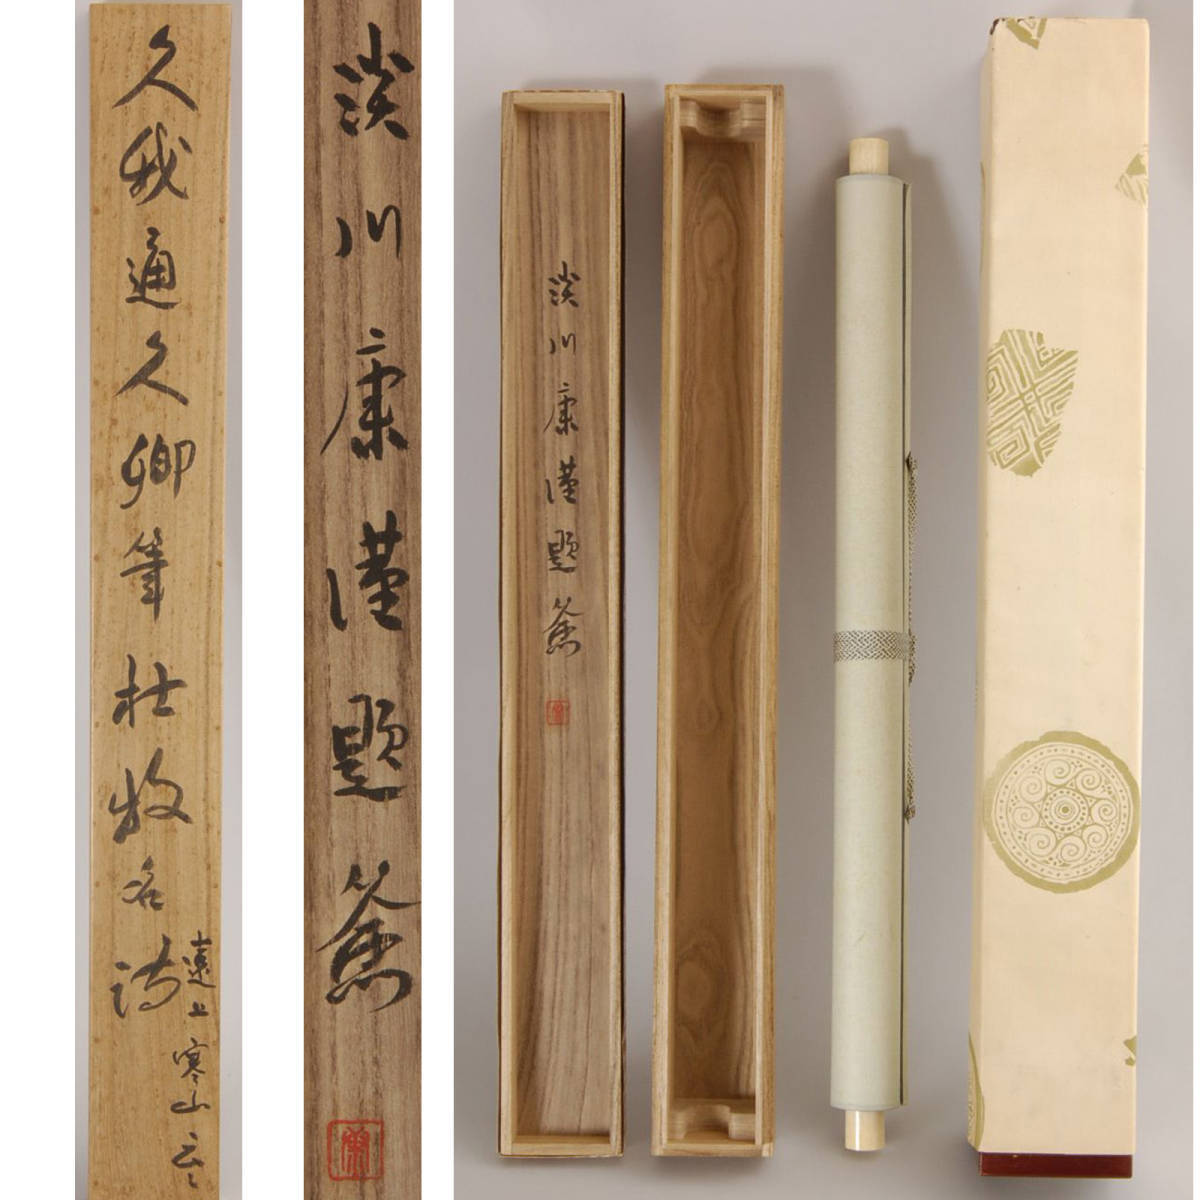 久我通久卿筆杜牧名詩
遠上寒山云々
淡川康謹題簽
淡川康謹題簽